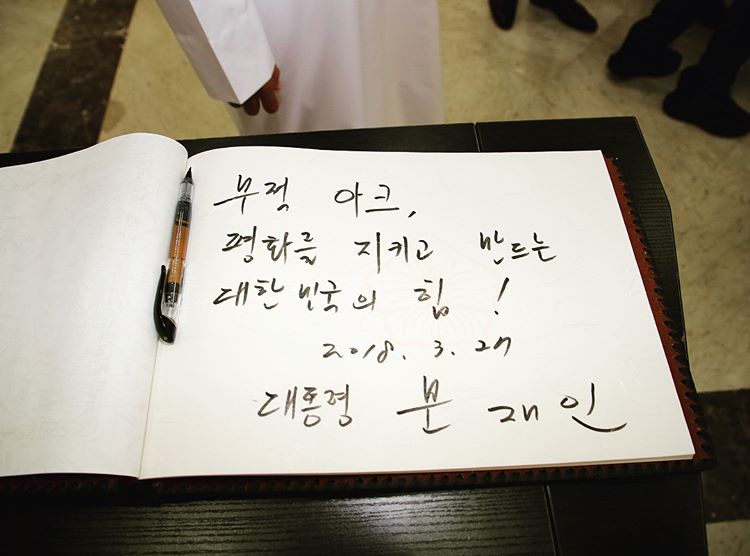 무적 아크,
평화를 지키고 만드는
대한민국의 힘!
2018. 3. 27
대통령 문재인